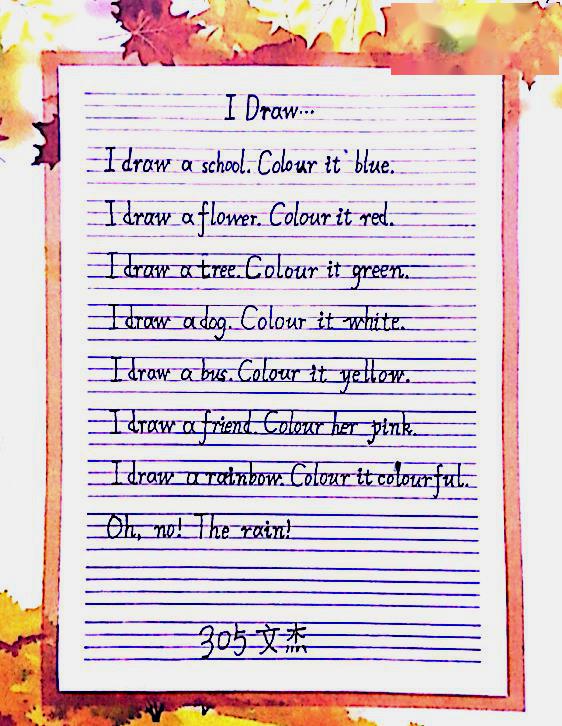 I Draw...
I draw a school. Colour it blue.
I draw a flower. Colour it red.
I draw a tree. Colour it green.
I draw a dog. Colour it white.
I draw a bus. Colour it yellow.
I draw a friend. Colour her pink.
I draw a rainbow. Colour it colourful.
Oh, no! The rain!
305 文杰